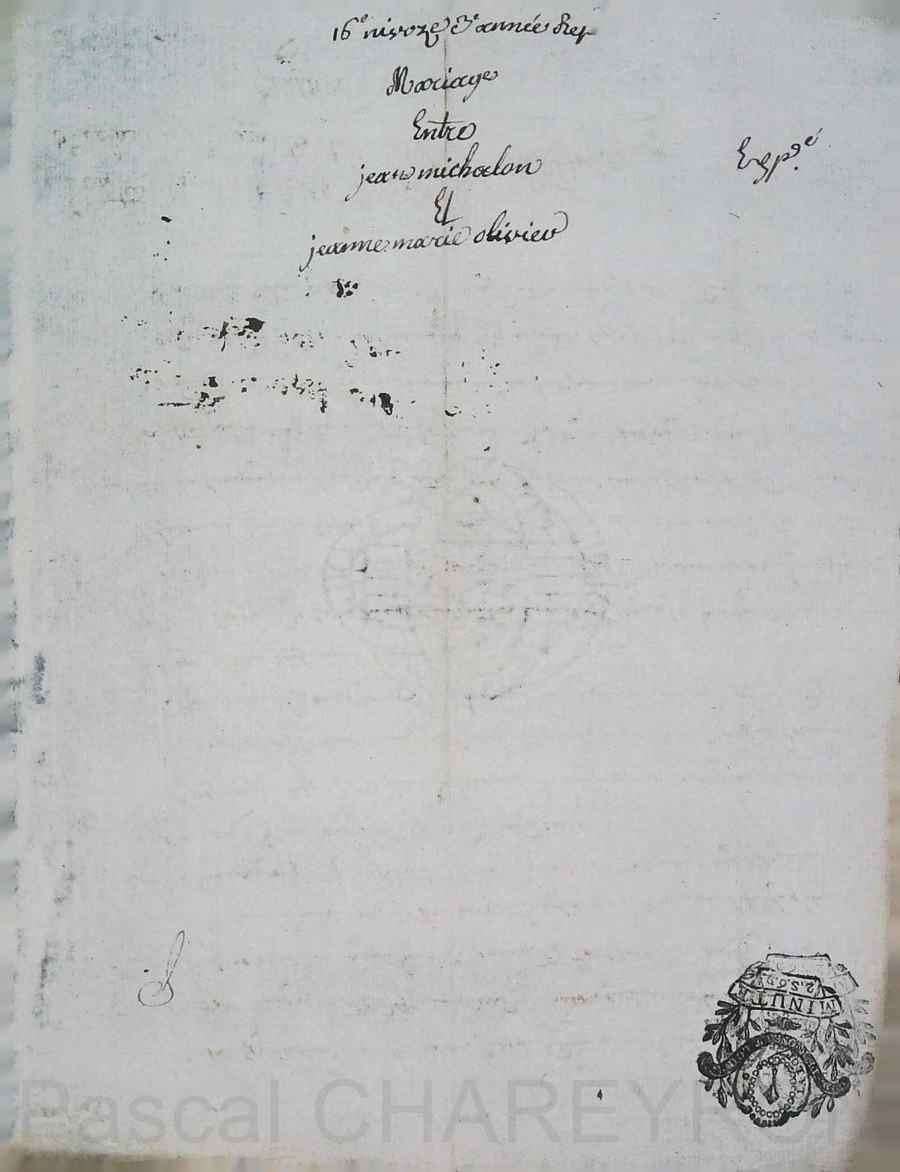 16e nivoze 3e année Rep
Mariage
Entre
jean michalon
Et
jeanne marie olivier
Expé
MINUT
2. S. 6 D
Pascal CHAREYRON